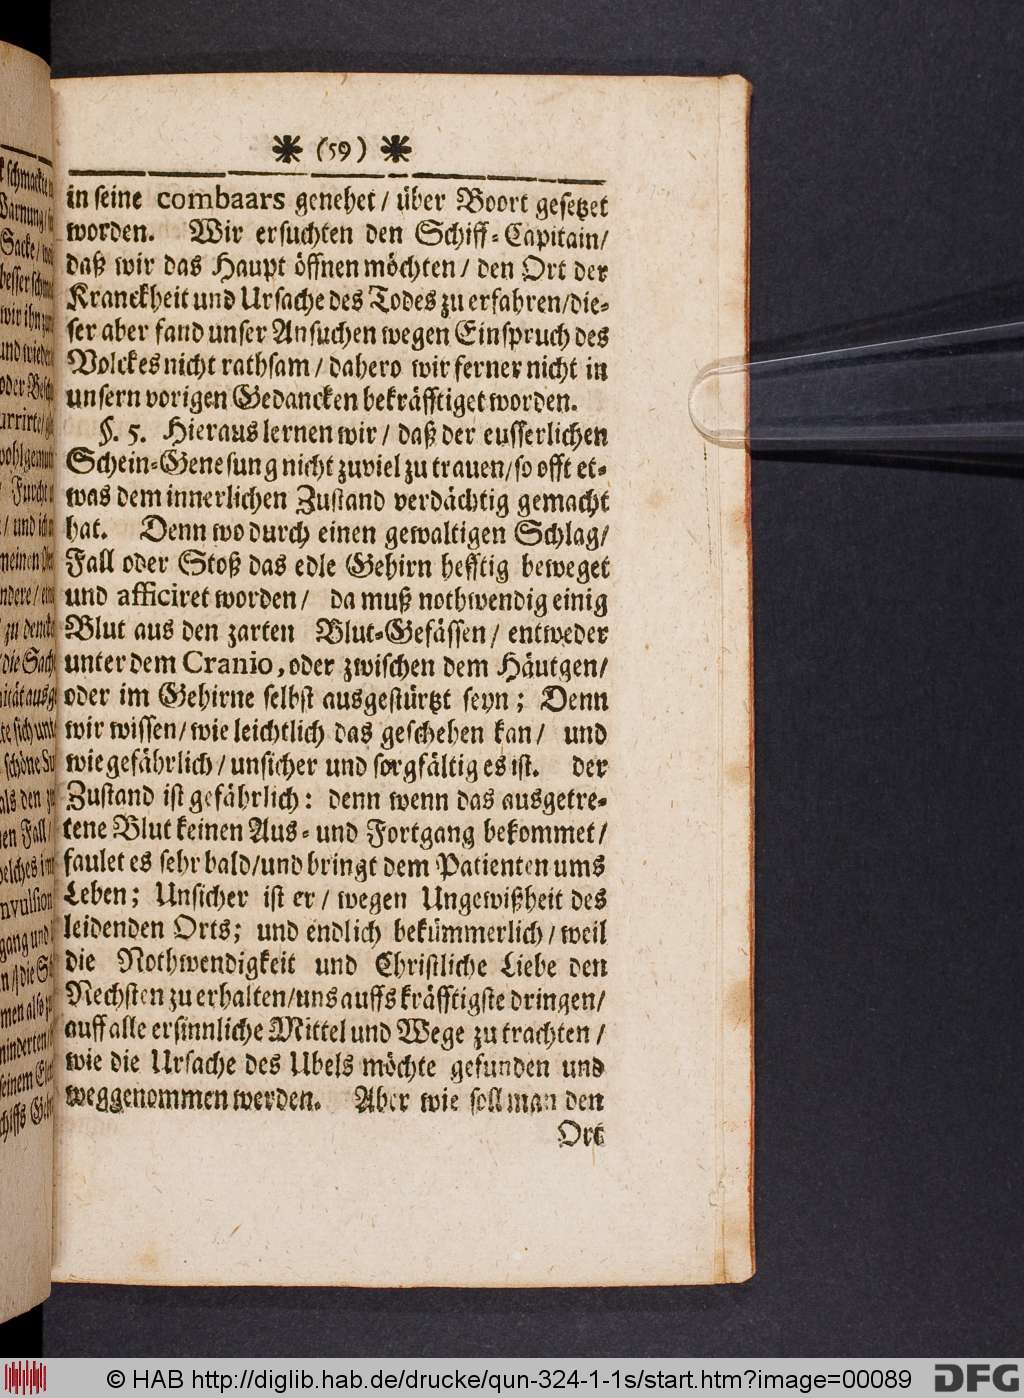 (59)
in seine combaars genehet / über Boort gesetzet
worden. Wir ersuchten den Schiff-Capitain/
daß wir das Haupt öffnen möchten / den Ort der
Kranckheit und Ursache des Todes zu erfahren/die-
ser aber fand unser Ansuchen wegen Einspruch des
Volckes nicht rathsam / dahero wir ferner nicht in
unsern vorigen Gedancken bekräfftiget worden.
§. 5. Hieraus lernen wir / daß der eusserlichen
Schein-Genesung nicht zuviel zu trauen/so offt et-
was dem innerlichen Zustand verdächtig gemacht
hat. Denn wo durch einen gewaltigen Schlag/
Fall oder Stoß das edle Gehirn hefftig beweget
und afficiret worden / da muß nothwendig einig
Blut aus den zarten Blut-Gefässen / entweder
unter dem Cranio, oder zwischen dem Häutgen/
oder im Gehirne selbst ausgestürtzt seyn; Denn
wir wissen/ wie leichtlich das geschehen kan / und
wie gefährlich / unsicher und sorgfältig es ist. der
Zustand ist gefährlich: denn wenn das ausgetre-
tene Blut keinen Aus- und Fortgang bekommet /
faulet es sehr bald/und bringt dem Patienten ums
Leben; Unsicher ist er / wegen Ungewißheit des
leidenden Orts; und endlich bekümmerlich / weil
die Nothwendigkeit und Christliche Liebe den
Nechsten zu erhalten/uns auffs kräfftigste dringen/
auff alle ersinnliche Mittel und Wege zu trachten /
wie die Ursache des Ubels möchte gefunden und
weggenommen werden. Aber wie soll man den
Ort
© HAB http://diglib.hab.de/drucke/qun-324-1-1s/start.htm?image=00089
DFG